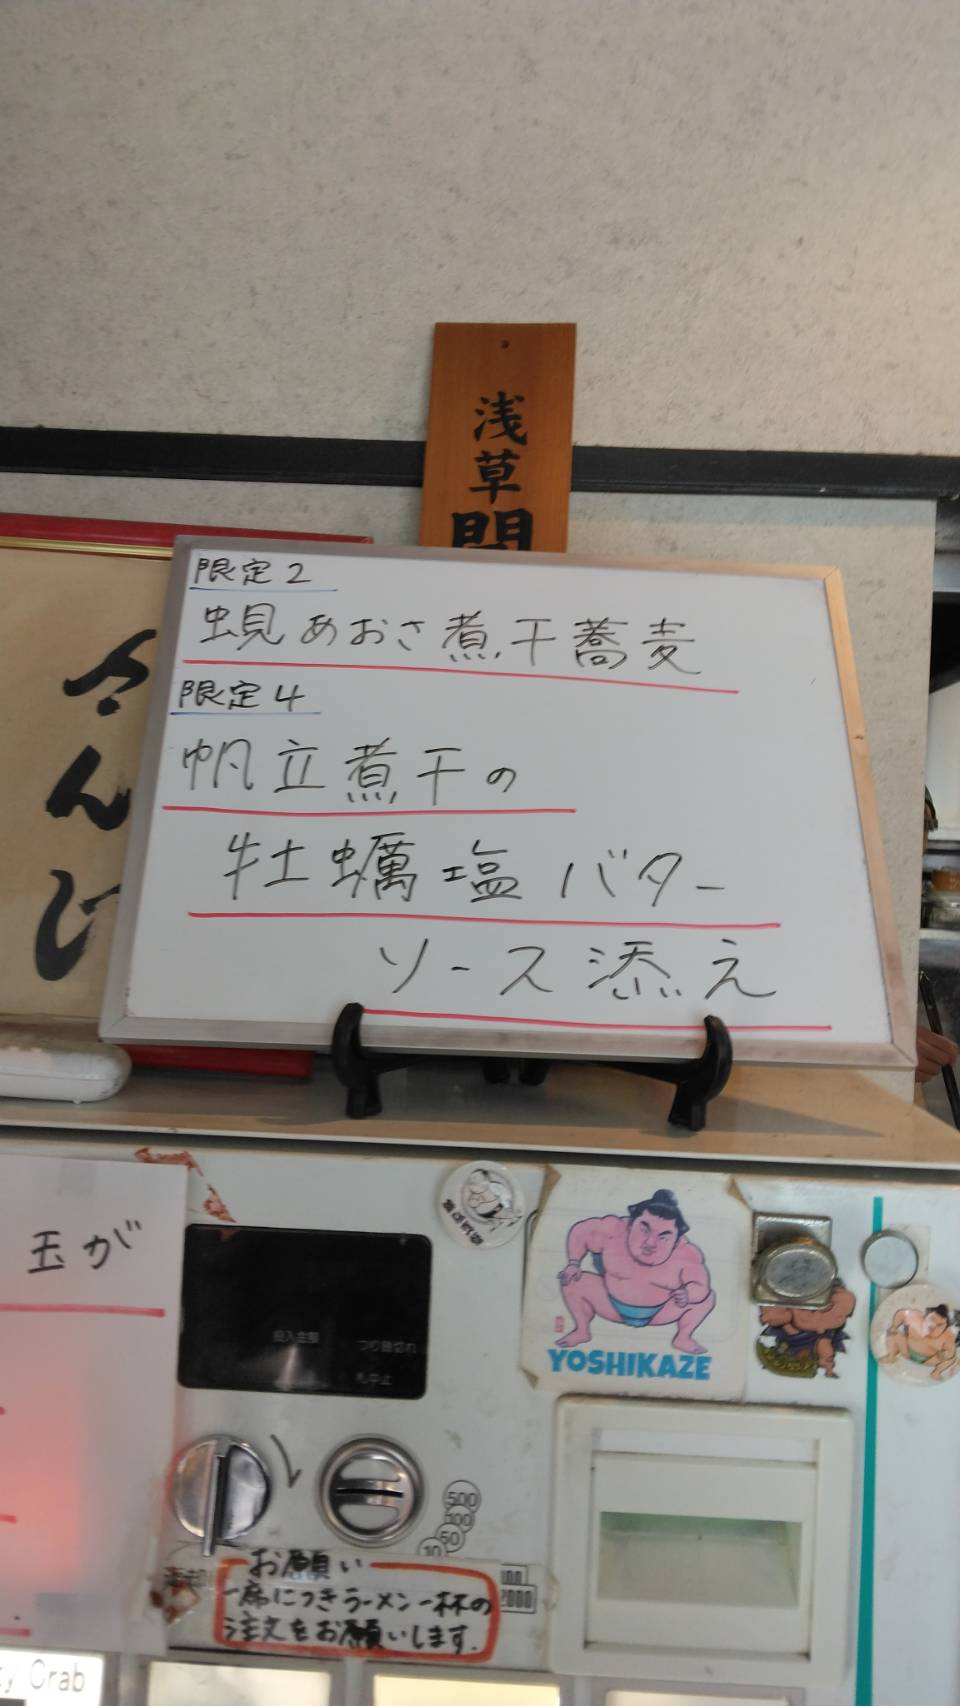 浅草
限定2
蜆あおさ煮干蕎麦
限定4
帆立煮干の
牡蠣塩バター
ソース添え
玉が
投入金額
つり銭切れ
札中止
YOSHIKAZE
500
100
50
10
お願い
一席につきラーメン一杯の
注文をお願いします.
Crab